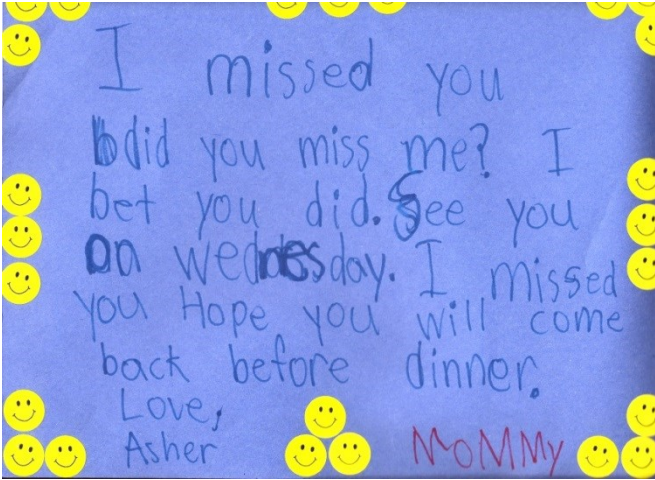 I missed you
did you miss me? I
bet you did. See you
on wednesday. I missed
you Hope you will come
back before dinner.
Love,
Asher
MoMMy